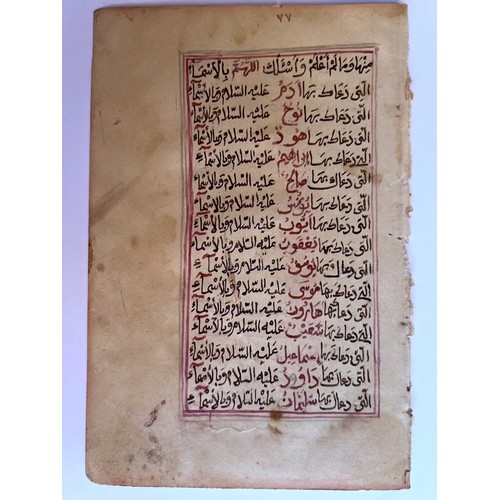 ٧٧
مِنْهَا وَمَا لَمْ أَعْلَمْ وَأَسْئَلُكَ اللّٰهُمَّ بِالْأَسْمَاءِ
الَّتِي دَعَاكَ بِهَا آدَمُ عَلَيْهِ السَّلَامُ وَبِالْأَسْمَاءِ
الَّتِي دَعَاكَ بِهَا نُوحٌ عَلَيْهِ السَّلَامُ وَبِالْأَسْمَاءِ
الَّتِي دَعَاكَ بِهَا هُودٌ عَلَيْهِ السَّلَامُ وَبِالْأَسْمَاءِ
الَّتِي دَعَاكَ بِهَا إِبْرَاهِيمُ عَلَيْهِ السَّلَامُ وَبِالْأَسْمَاءِ
الَّتِي دَعَاكَ بِهَا صَالِحٌ عَلَيْهِ السَّلَامُ وَبِالْأَسْمَاءِ
الَّتِي دَعَاكَ بِهَا يُونُسُ عَلَيْهِ السَّلَامُ وَبِالْأَسْمَاءِ
الَّتِي دَعَاكَ بِهَا أَيُّوبُ عَلَيْهِ السَّلَامُ وَبِالْأَسْمَاءِ
الَّتِي دَعَاكَ بِهَا يَعْقُوبُ عَلَيْهِ السَّلَامُ وَبِالْأَسْمَاءِ
الَّتِي دَعَاكَ بِهَا يُوسُفُ عَلَيْهِ السَّلَامُ وَبِالْأَسْمَاءِ
الَّتِي دَعَاكَ بِهَا مُوسَى عَلَيْهِ السَّلَامُ وَبِالْأَسْمَاءِ
الَّتِي دَعَاكَ بِهَا هَارُونُ عَلَيْهِ السَّلَامُ وَبِالْأَسْمَاءِ
الَّتِي دَعَاكَ بِهَا شُعَيْبٌ عَلَيْهِ السَّلَامُ وَبِالْأَسْمَاءِ
الَّتِي دَعَاكَ بِهَا إِسْمَاعِيلُ عَلَيْهِ السَّلَامُ وَبِالْأَسْمَاءِ
الَّتِي دَعَاكَ بِهَا دَاوُدُ عَلَيْهِ السَّلَامُ وَبِالْأَسْمَاءِ
الَّتِي دَعَاكَ بِهَا سُلَيْمَانُ عَلَيْهِ السَّلَامُ وَبِالْأَسْمَاءِ